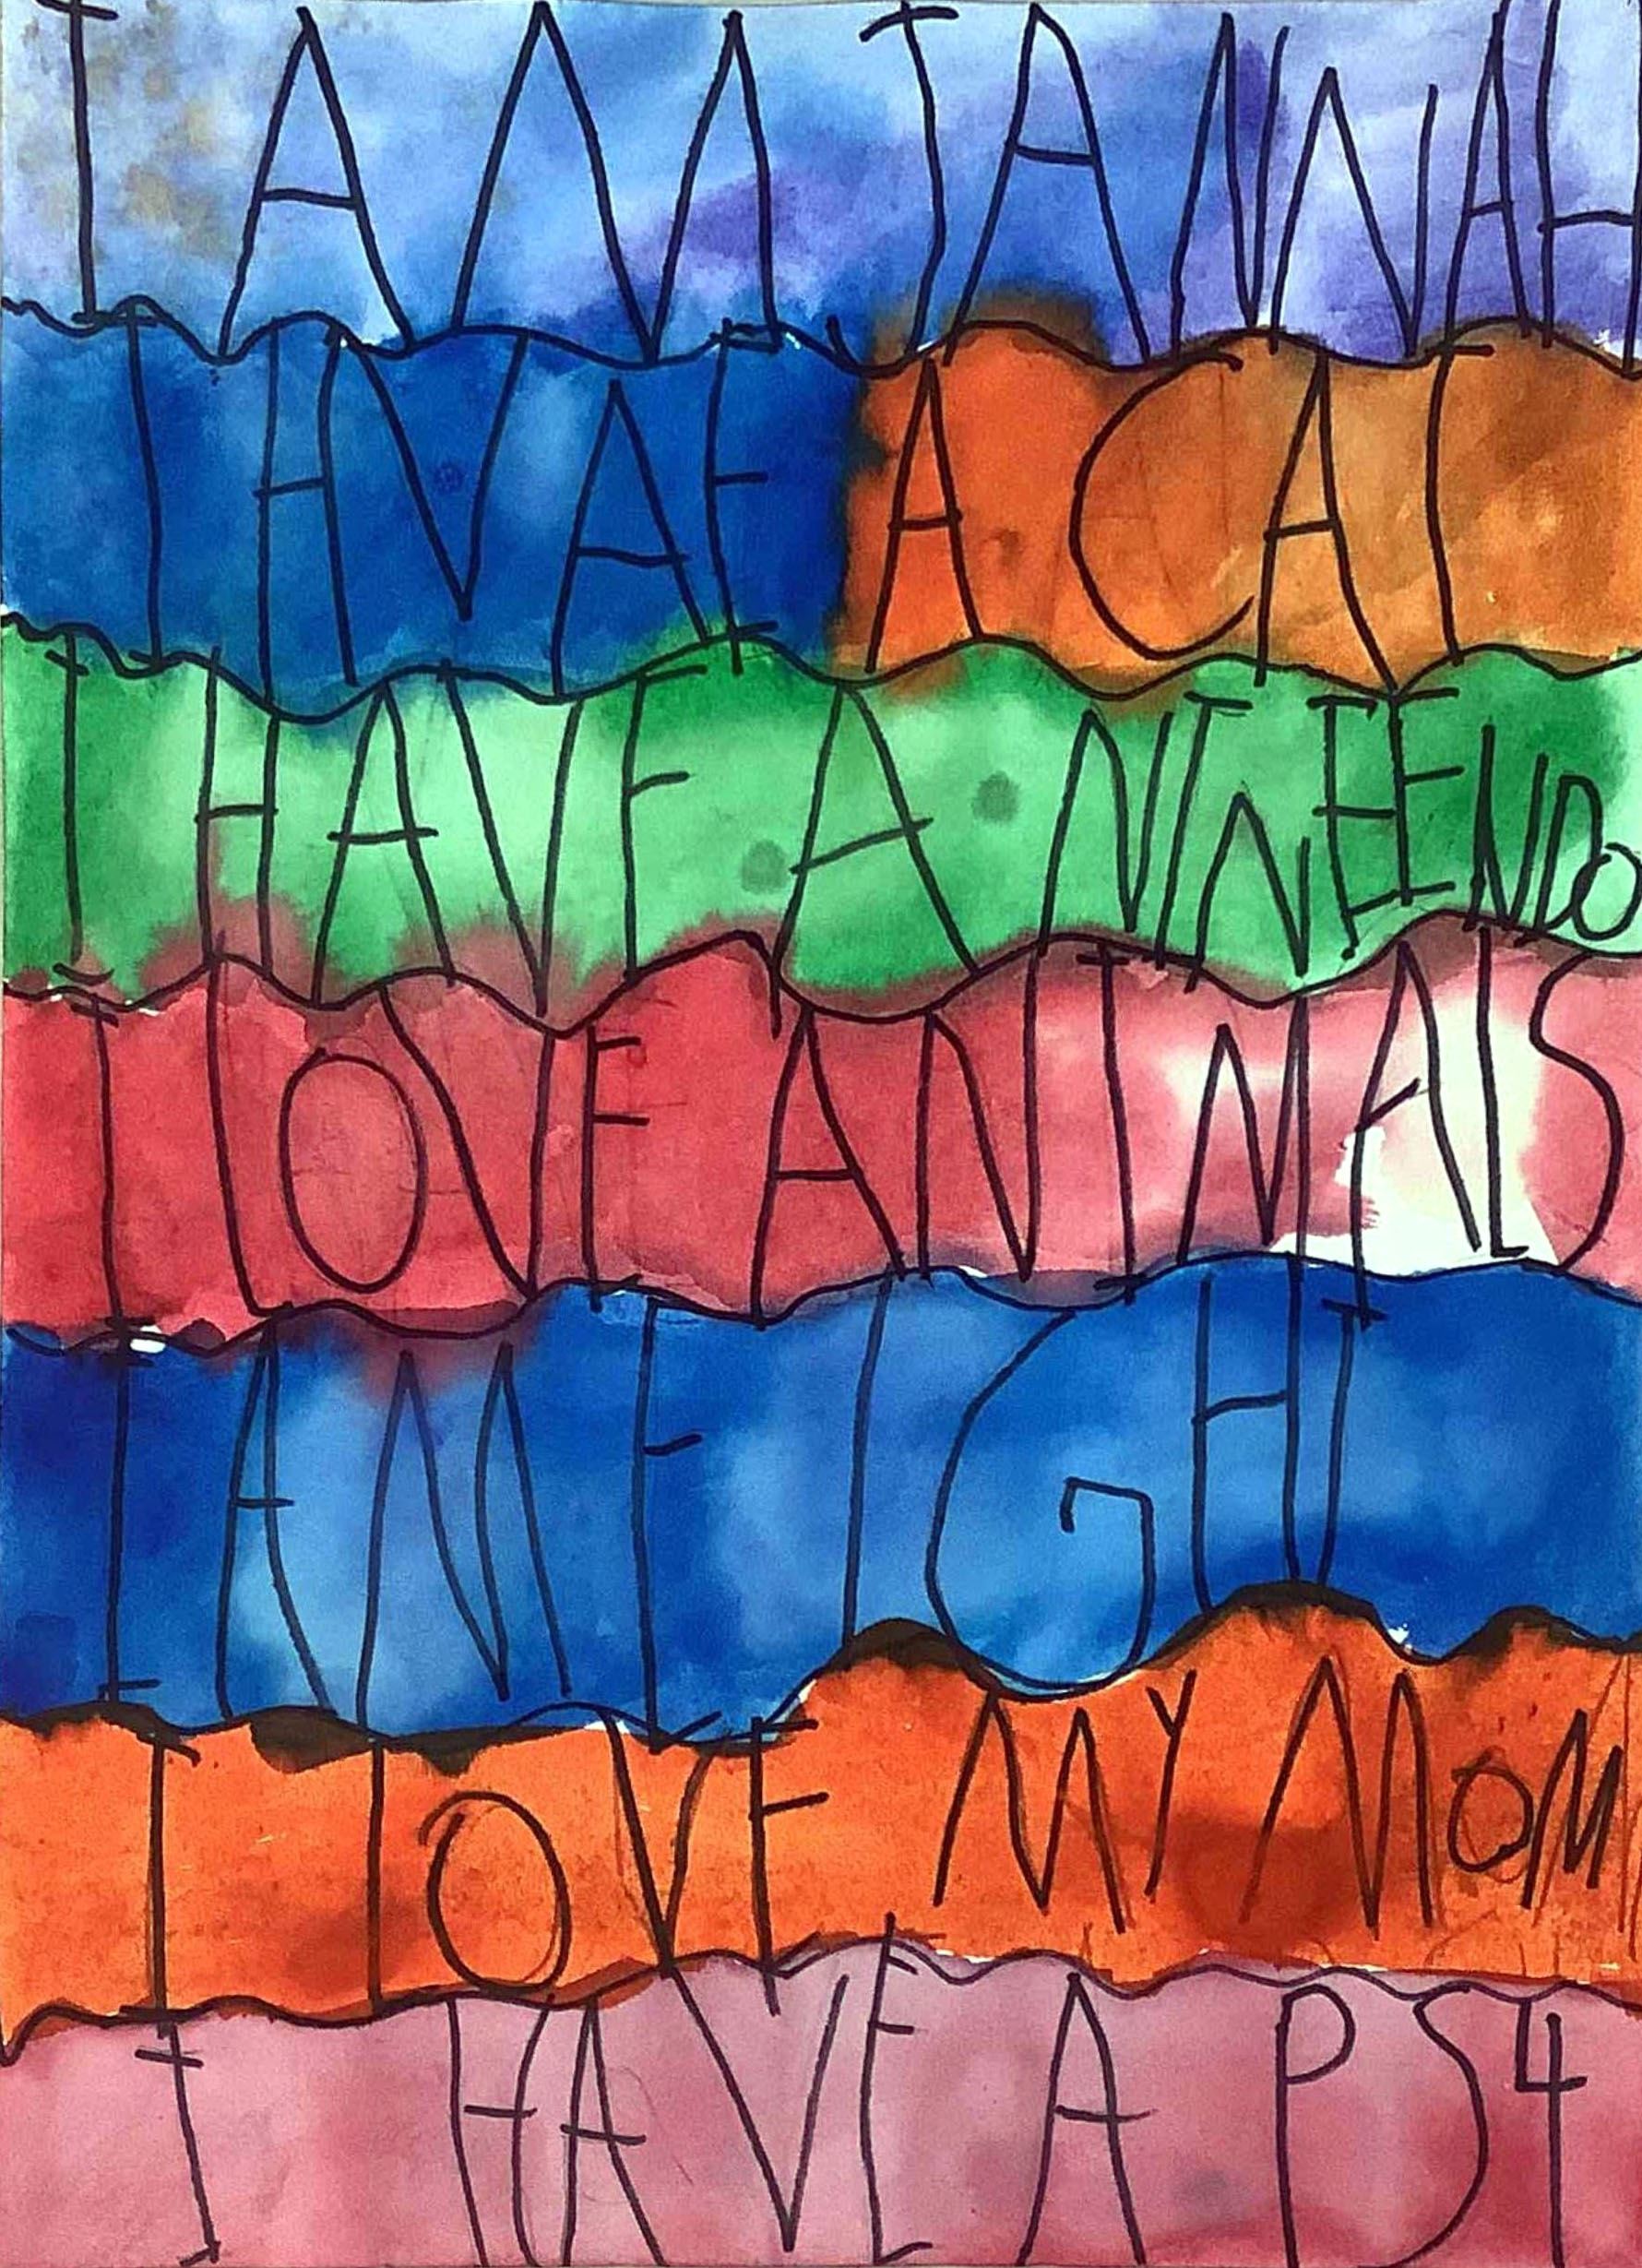 I AM JANNAH
I HVAE A CAT
I HAVE A NINEENDO
I LOVE ANIMALS
I AM EIGHT
I LOVE MY MOM
I HAVE A PS4